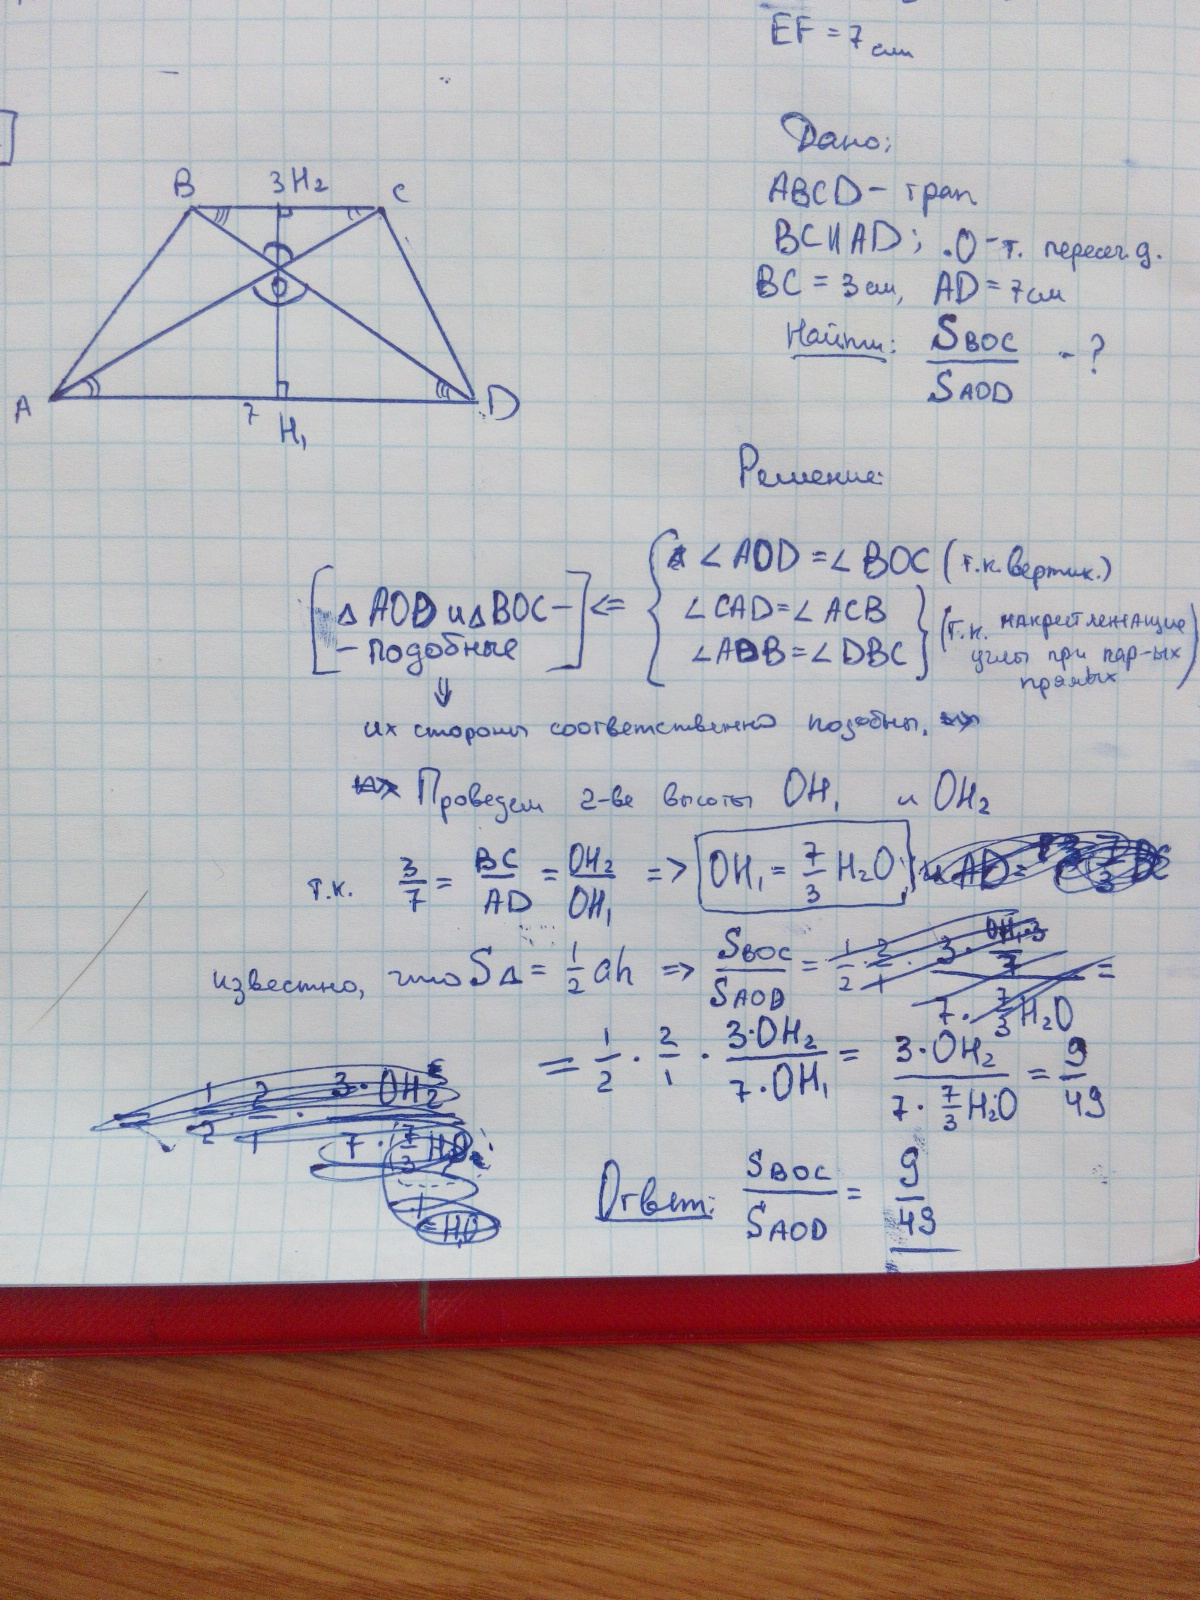 EF = 7 см
Дано:
ABCD - трап
BC II AD; .O - т. пересеч. д.
BC = 3 см, AD = 7 см
Найти: SBOC / SAOD - ?
B 3 H₂ C
O
A 7 H₁ D
Решение:
∠ AOD = ∠ BOC (т.к. вертик.)
Δ AOD и Δ BOC - <= ∠ CAD = ∠ ACB
- подобные ∠ ADB = ∠ DBC (т.к. накрест лежащие углы при пар-ых прямых)
⇓
их стороны соответственно подобны.
Проведем 2-ве высоты OH₁ и OH₂
т.к. 3/7 = BC/AD = OH₂/OH₁ => OH₁ = 7/3 H₂O
известно, что SΔ = 1/2 ah => SBOC/SAOD =
= 1/2 · 2/1 · 3·OH₂ / 7·OH₁ = 3·OH₂ / 7·7/3 H₂O = 9/49
Ответ: SBOC / SAOD = 9/49